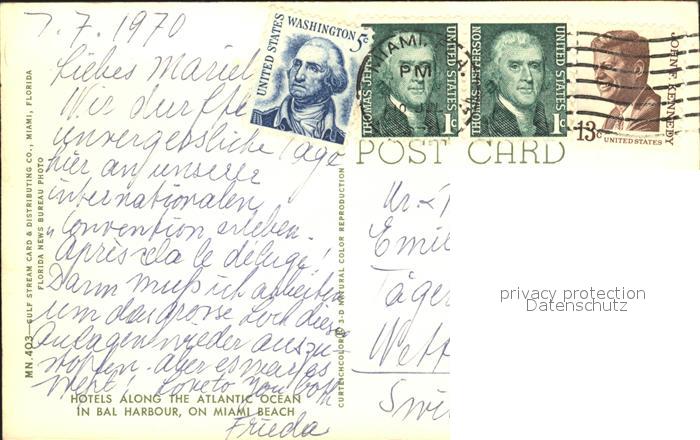 7. 7. 1970
Liebes Mariel
Wir durften
unvergessliche Tage
hier an unserer
internationalen
Convention erleben.
Après cela le déluge!
Dann muß ich arbeiten
um das grosse Loch dieser
Auslagen wieder auszu-
stopfen. Aber es war es
wert! Love to you both
Frieda
HOTELS ALONG THE ATLANTIC OCEAN
IN BAL HARBOUR, ON MIAMI BEACH
MN.403—GULF STREAM CARD & DISTRIBUTING CO., MIAMI, FLORIDA
FLORIDA NEWS BUREAU PHOTO
CURTEICHCOLOR® 3-D NATURAL COLOR REPRODUCTION
UNITED STATES WASHINGTON 5c
MIAMI,
PM
THOMAS JEFFERSON
UNITED STATES
1c
THOMAS JEFFERSON
UNITED STATES
1c
JOHN F. KENNEDY
13c
UNITED STATES
POST CARD
Emil
Täger
Wett
Swi
privacy protection
Datenschutz